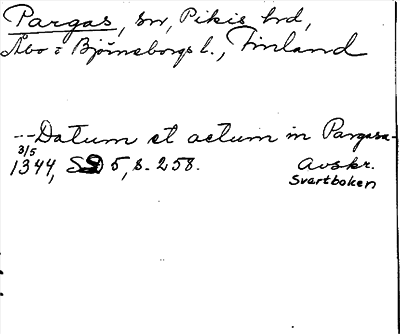 Pargas, sn, Pikis hrd,
Åbo o Björneborgs l., Finland
--- Datum et actum in Pargasa-
3/5
1344, SD 5, s. 258. Avskr.
Svartboken